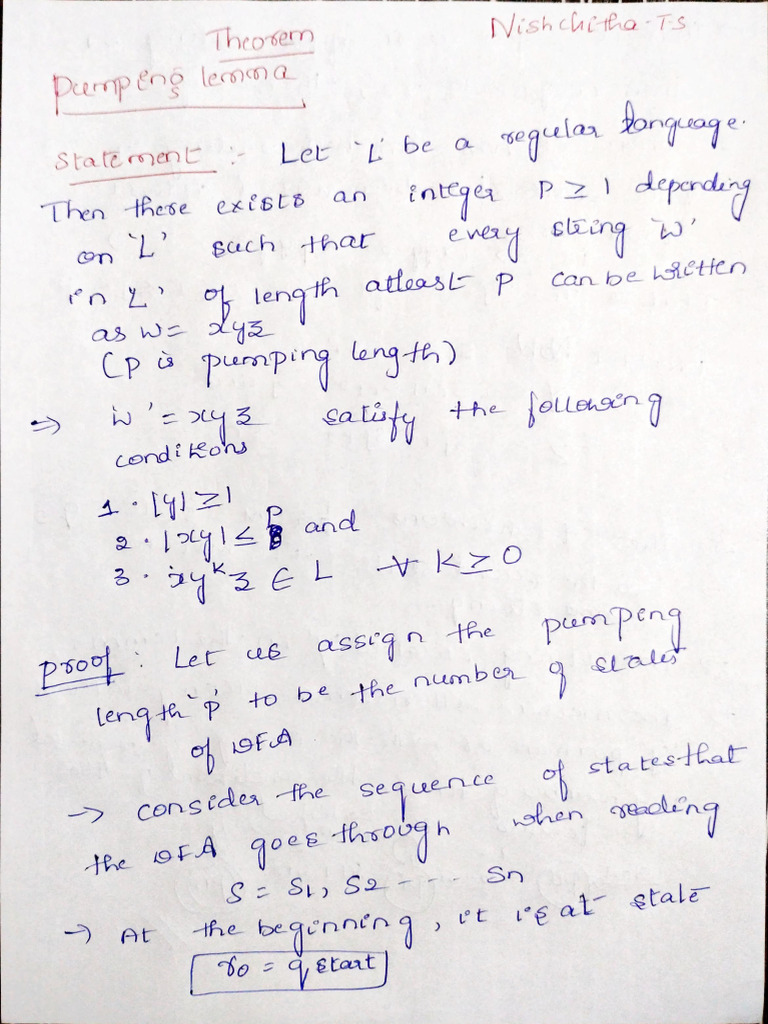 Theorem
Nishchitha-T.S.
Pumping lemma
Statement :- Let 'L' be a regular language.
Then there exists an integer P ≥ 1 depending
on 'L' such that every string 'w'
in 'L' of length atleast P can be written
as w = xyz
(P is pumping length)
⇒ 'w' = xyz satisfy the following
conditions
1. |y| ≥ 1
2. |xy| ≤ P and
3. xy^k z ∈ L ∀ K ≥ 0
proof : Let us assign the pumping
length 'p' to be the number of states
of DFA
→ consider the sequence of states that
the DFA goes through when reading
S = S1, S2 ---- Sn
→ At the beginning, it is at state
r0 = q start